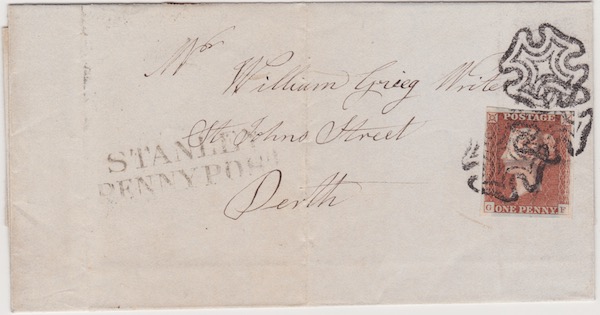 Mr
William Grieg Writer
St Johns Street
Perth
STANLEY
PENNY POST
POSTAGE
ONE PENNY